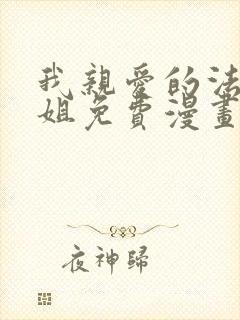 我親愛的法
姐免費漫畫
夜神歸